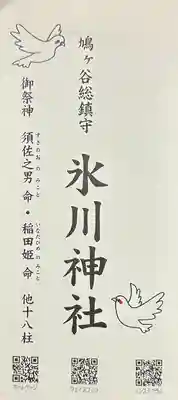 鳩ヶ谷総鎮守
氷川神社
御祭神 須佐之男命・稲田姫命 他十八柱
すさのおのみこと いなだひめのみこと